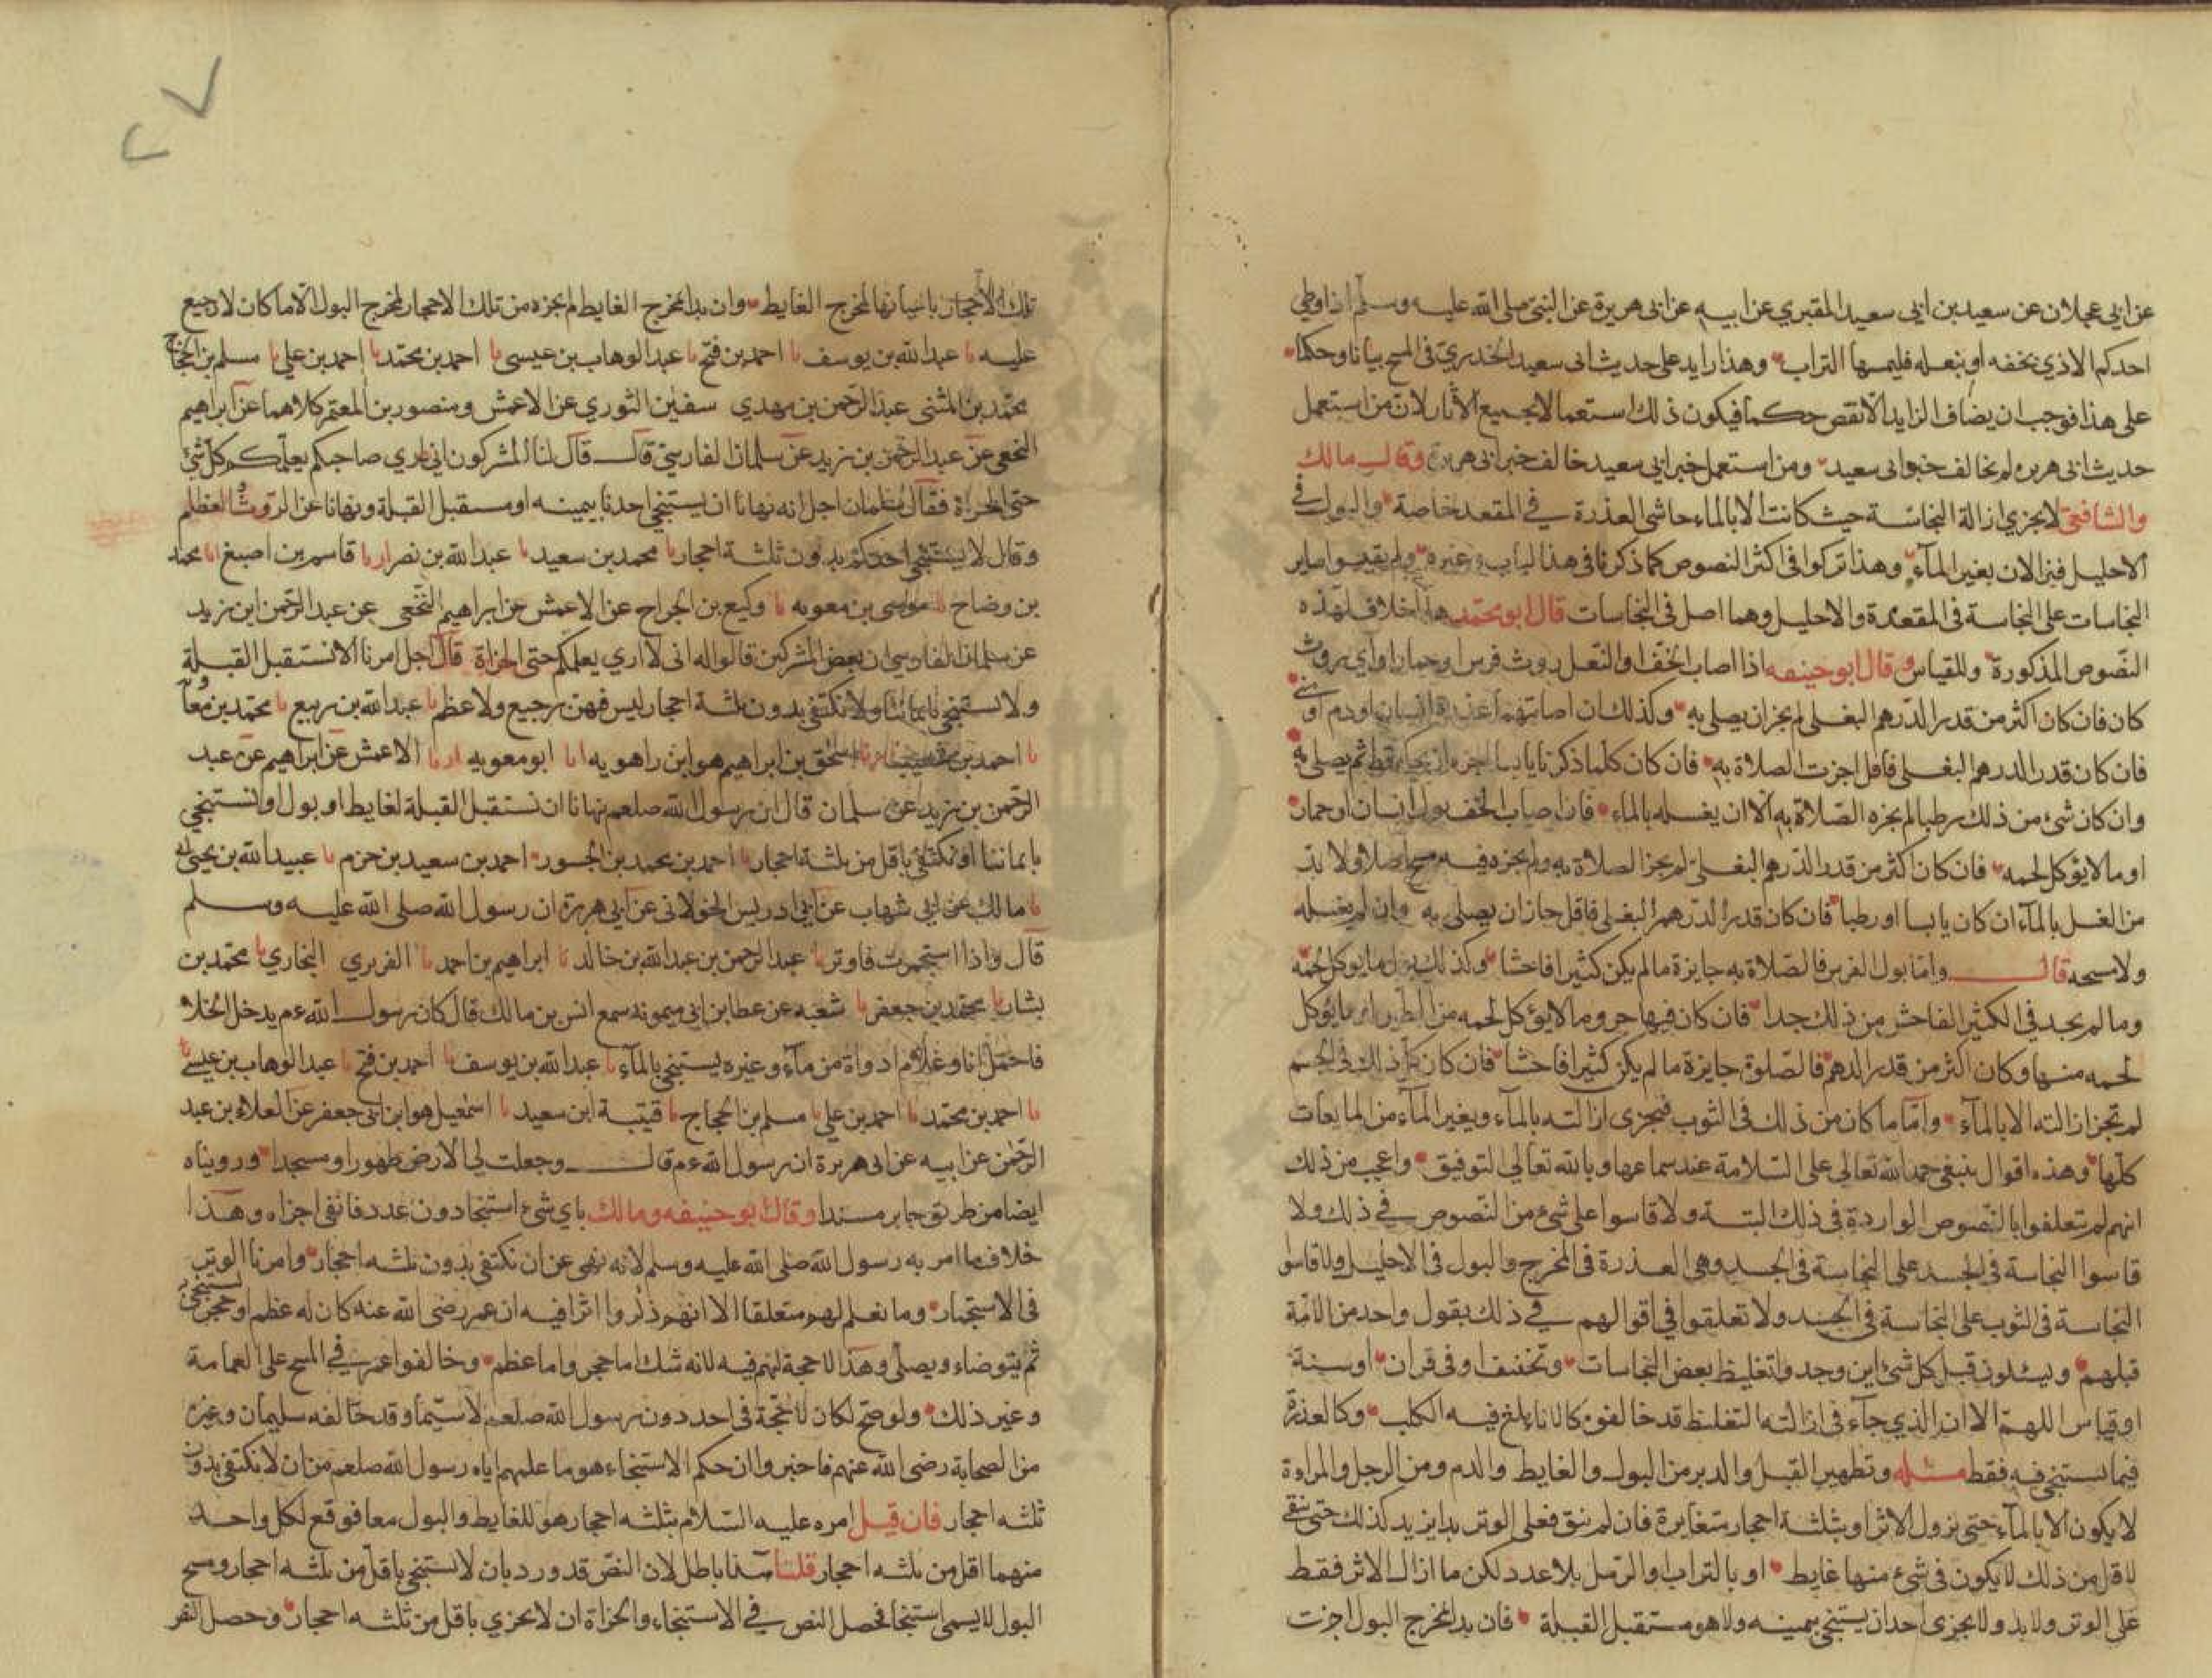 عن ابي عجلان عن سعيد بن ابي سعيد المقبري عن ابيه عن ابي هريرة عن النبي صلى الله عليه وسلم اذا وطي
احدكم الاذي بخفه او بنعله فليمسها التراب وهذا زايد على حديث ابي سعيد الخدري في المسح بيانا وحكما
على هذا فوجب ان يضاف الزايد الانقص حكما فيكون ذلك استعمالا لجميع الآثار لان من استعمل
حديث ابي هريره لم يخالف خبر ابي سعيد ومن استعمل خبر ابي سعيد خالف خبر ابي هريرة وقال مالك
والشافعي لا يجزي ازالة النجاسة حيث كانت الا بالماء حاشى العذرة في المقعد خاصة والبول في
الاحليل فيزالان بغير المآء وهذا تركوا فى اكثر النصوص كما ذكرنا في هذا الباب وغيره ولم يقيسوا ساير
النجاسات على النجاسة في المقعدة والاحليل وهما اصل في النجاسات قال ابو محمد هذا خلاف لهذه
النصوص المذكورة وللقياس وقال ابو حنيفه اذا اصاب الخف او النعل روث فرس او حمار او اي روث
كان فان كان اكثر من قدر الدرهم البغلي لم يجز ان يصلي به وكذلك ان اصابتهما عذرة انسان او دم او مني
فان كان قدر الدرهم البغلي فاقل اجزت الصلاة به فان كان كلما ذكرنا يابسا اجزه ان يحكه فقط ثم يصلي به
وان كان شئ من ذلك رطبا لم يجزه الصلاة به الا ان يغسله بالماء فان اصاب الخف بول انسان او حمار
او ما لا يؤكل لحمه فان كان اكثر من قدر الدرهم البغلي لم يجز الصلاة به ولم يجزه فيه مسح اصلا ولا بد
من الغسل بالمآء ان كان يابسا او رطبا فان كان قدر الدرهم البغلي فاقل جاز ان يصلي به وان لم يغسله
ولا مسحه قال واما بول الفرس فالصلاة به جايزة ما لم يكن كثيرا فاحشا وكذلك بول ما يوكل لحمه
وما لم يحد في الكثير الفاحش من ذلك جدا فان كان فيها خرو ما لا يؤكل لحمه من الطير او ما يؤكل
لحمه منها وكان اكثر من قدر الدرهم فالصلوة جايزة ما لم يكن كثيرا فاحشا فان كان كل ذلك في الجسم
لم تجز ازالته الا بالمآء واما ما كان من ذلك في الثوب فيجزى ازالته بالمآء وبغير المآء من المايعات
كلها وهذه اقوال ينبغي حمد الله تعالى على السلامة عند سماعها وبالله تعالى التوفيق واعجب من ذلك
انهم لم يتعلقوا بالنصوص الواردة في ذلك البتة ولا قاسوا على شئ من النصوص في ذلك ولا
قاسوا النجاسة في الجسد على النجاسة في الجسد وهي العذرة في المخرج والبول في الاحليل ولا قاسوا
النجاسة في الثوب على النجاسة في الجسد ولا تعلقوا في اقوالهم في ذلك بقول واحد من الائمة
قبلهم ويسئلون قبل كل شئ اين وجدوا تغليظ بعض النجاسات وتخفيف اوفى قران او سنة
او قياس اللهم الا ان الذي جآء في ازالته التغليظ قد خالفوه كالاناء يلغ فيه الكلب وكالعذرة
فيما يستنجى فيه فقط مسئله وتطهير القبل والدبر من البول والغايط والدم ومن الرجل والمراة
لا يكون الا بالمآء حتى يزول الاثر او بثلثة احجار متغايرة فان لم ينق فعلى الوتر بدا يزيد كذلك حتى ينقي
لا اقل من ذلك لا يكون في شئ منها غايط او بالتراب او الرمل بلا عدد لكن ما ازال الاثر فقط
على الوتر ولا بد ولا يجزى احدا ان يستنجي بيمينه ولا هو مستقبل القبلة فان بدا بمخرج البول اجزت
تلك الاحجار باعيانها لمخرج الغايط وان بدا بمخرج الغايط لم يجزه من تلك الاحجار لمخرج البول الا ما كان لا رجيع
عليه نا عبد الله بن يوسف نا احمد بن فتح نا عبد الوهاب بن عيسى نا احمد بن محمد نا احمد بن علي نا مسلم بن الحجاج
محمد بن المثنى عبد الرحمن بن مهدي سفين الثوري عن الاعمش ومنصور بن المعتمر كلاهما عن ابراهيم
النخعي عن عبد الرحمن بن يزيد عن سلمان الفارسي قال قال لنا المشركون اني اري صاحبكم يعلمكم كل شئ
حتى الخراة فقال سلمان اجل انه نهانا ان يستنجي احدنا بيمينه او مستقبل القبلة ونهانا عن الروث والعظام
وقال لا يستنجي احدكم بدون ثلثة احجار نا محمد بن سعيد نا عبد الله بن نصر نا قاسم بن اصبغ نا محمد
بن وضاح نا موسى بن معويه نا وكيع بن الجراح عن الاعمش عن ابراهيم النخعي عن عبد الرحمن ابن يزيد
عن سلمان الفارسي ان بعض المشركين قالوا له اني لاري يعلمكم حتى الخراة قال اجل امرنا الا نستقبل القبلة
ولا نستنجي بايماننا ولا نكتفي بدون ثلثة احجار ليس فيهن رجيع ولا عظم نا عبد الله بن ربيع نا محمد بن معويه
نا احمد بن شعيب انا اسحق بن ابراهيم هو ابن راهويه انا ابو معويه نا الاعمش عن ابراهيم عن عبد
الرحمن بن يزيد عن سلمان قال ان رسول الله صلعم نهانا ان نستقبل القبلة لغايط او بول او نستنجي
بايماننا او نكتفي باقل من ثلثة احجار نا احمد بن محمد بن الجسور احمد بن سعيد بن حزم نا عبيد الله بن يحيى
نا مالك عن ابي شهاب عن ابي ادريس الخولاني عن ابي هريرة ان رسول الله صلى الله عليه وسلم
قال واذا استجمرت فاوتر نا عبد الرحمن بن عبد الله بن خالد نا ابراهيم بن احمد نا الفربري البخاري نا محمد بن
بشار نا محمد بن جعفر نا شعبه عن عطا بن ابي ميمونه سمع انس بن مالك قال كان رسول الله عم يدخل الخلا
فاحمل انا وغلام اداوة من مآء وغيره يستنجي بالمآء نا عبد الله بن يوسف نا احمد بن فتح نا عبد الوهاب بن عيسى نا
نا احمد بن محمد نا احمد بن علي نا مسلم بن الحجاج نا قتيبة ابن سعيد نا اسمعيل هو ابن ابي جعفر عن العلاء بن عبد
الرحمن عن ابيه عن ابي هريرة ان رسول الله عم قال وجعلت لي الارض طهورا ومسجدا ورويناه
ايضا من طريق جابر مسندا وقال ابو حنيفه ومالك باي شئ استنجا دون عدد فانقى اجزاه وهذا
خلاف ما امر به رسول الله صلى الله عليه وسلم لانه نهى عن ان نكتفي بدون ثلثه احجار وامرنا الوتر
في الاستجمار وما نعلم لهم متعلقا الا انهم ذكروا اثرا فيه ان عمر رضى الله عنه كان له عظم او حجر يستنجي
ثم يتوضاء ويصلي وهذا لا حجة لهم فيه لانه شك اما حجر واما عظم وخالفوا عمر في المسح على العمامة
وغير ذلك ولو صح لكان لا حجة في احد دون رسول الله صلعم لا سيما وقد خالفه سليمان وغيره
من الصحابة رضى الله عنهم فاخبروا ان حكم الاستنجاء هو ما علمهم اياه رسول الله صلعم من ان لا نكتفي بدون
ثلثه احجار فان قيل امره عليه السلام بثلثه احجار هو للغايط والبول معا فوقع لكل واحد
منهما اقل من ثلثه احجار قلنا هذا باطل لان النص قد ورد بان لا نستنجي باقل من ثلثه احجار ومسح
البول لا يسمى استنجا فحصل النص في الاستنجاء والخراة ان لا يجزي باقل من ثلثه احجار وحصل النفر